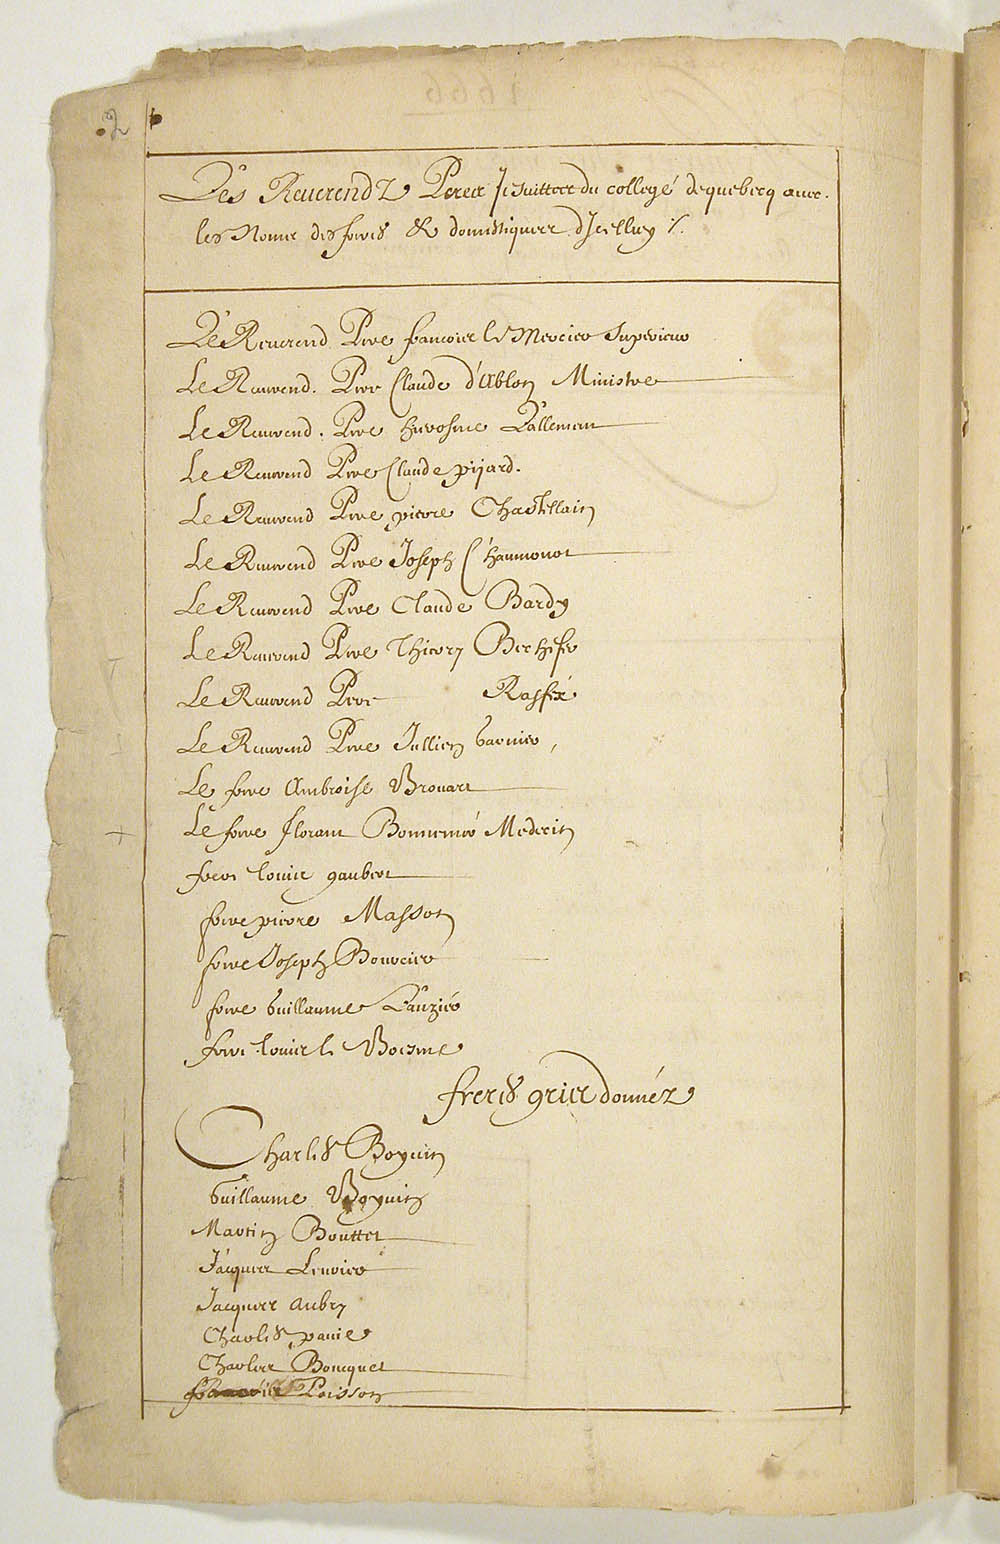 2
Des Reuerendz Peres Jesuittes du collegé de quebecq auec
les Noms des freres & domestiques d'Jcelluy
Le Reuerend Pere francois le Mercier Superieur
Le Reuerend Pere Claude d'Ablon Ministre
Le Reuerend Pere hierosme L'allemen
Le Reuerend Pere Claude pijard.
Le Reuerend Pere pierre Chastellain
Le Reuerend Pere Joseph Chaumonot
Le Reuerend Pere Claude Bardy
Le Reuerend Pere Thiery Bechefer
Le Reuerend Pere Raffeix
Le Reuerend Pere Jullien Garnier,
Le frere Ambroise Brouart
Le frere floram Bonnemer Medecin
frere Louis gaubert
frere pierre Masson
frere Joseph Boursier
frere Guillaume Lauzier
frere Louis le Boesme
freres gris donnéz
Charles Boquin
Guillaume Boquin
Martin Bouttet
Jacques Leurier
Jacques aubry
Charles panie
Charles Boucquet
francois Poisson